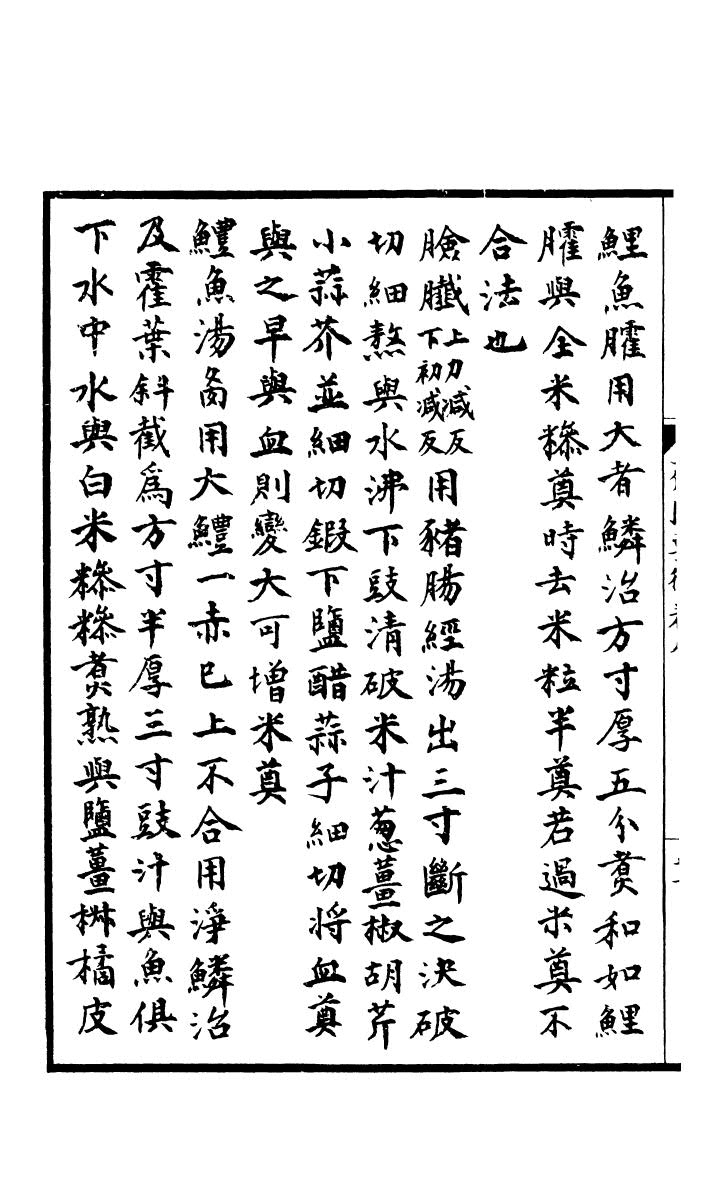 鯉魚臛用大者鱗治方寸厚五分煑和如鯉
臛與全米糝奠時去米粒半奠若過米奠不
合法也
臉䑋上力減反下初減反用豬腸經湯出三寸斷之決破
切細熬與水沸下豉清破米汁葱薑椒胡芹
小蒜芥並細切鍜下鹽醋蒜子細切將血奠
與之早與血則變大可增米奠
鱧魚湯㕯用大鱧一赤已上不合用淨鱗治
及霍葉斜截爲方寸半厚三寸豉汁與魚俱
下水中水與白米糝糝煑熟與鹽薑椒橘皮